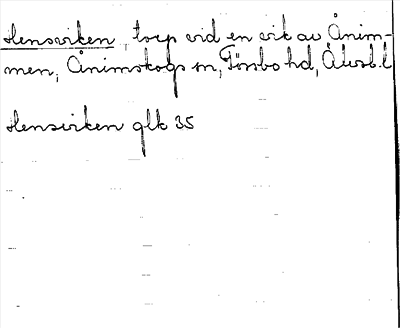 Hensviken, torp vid en vik av Ånim-
men, Ånimskogs sn, Tössbo hd, Älvsb.l
Hensviken glk 35